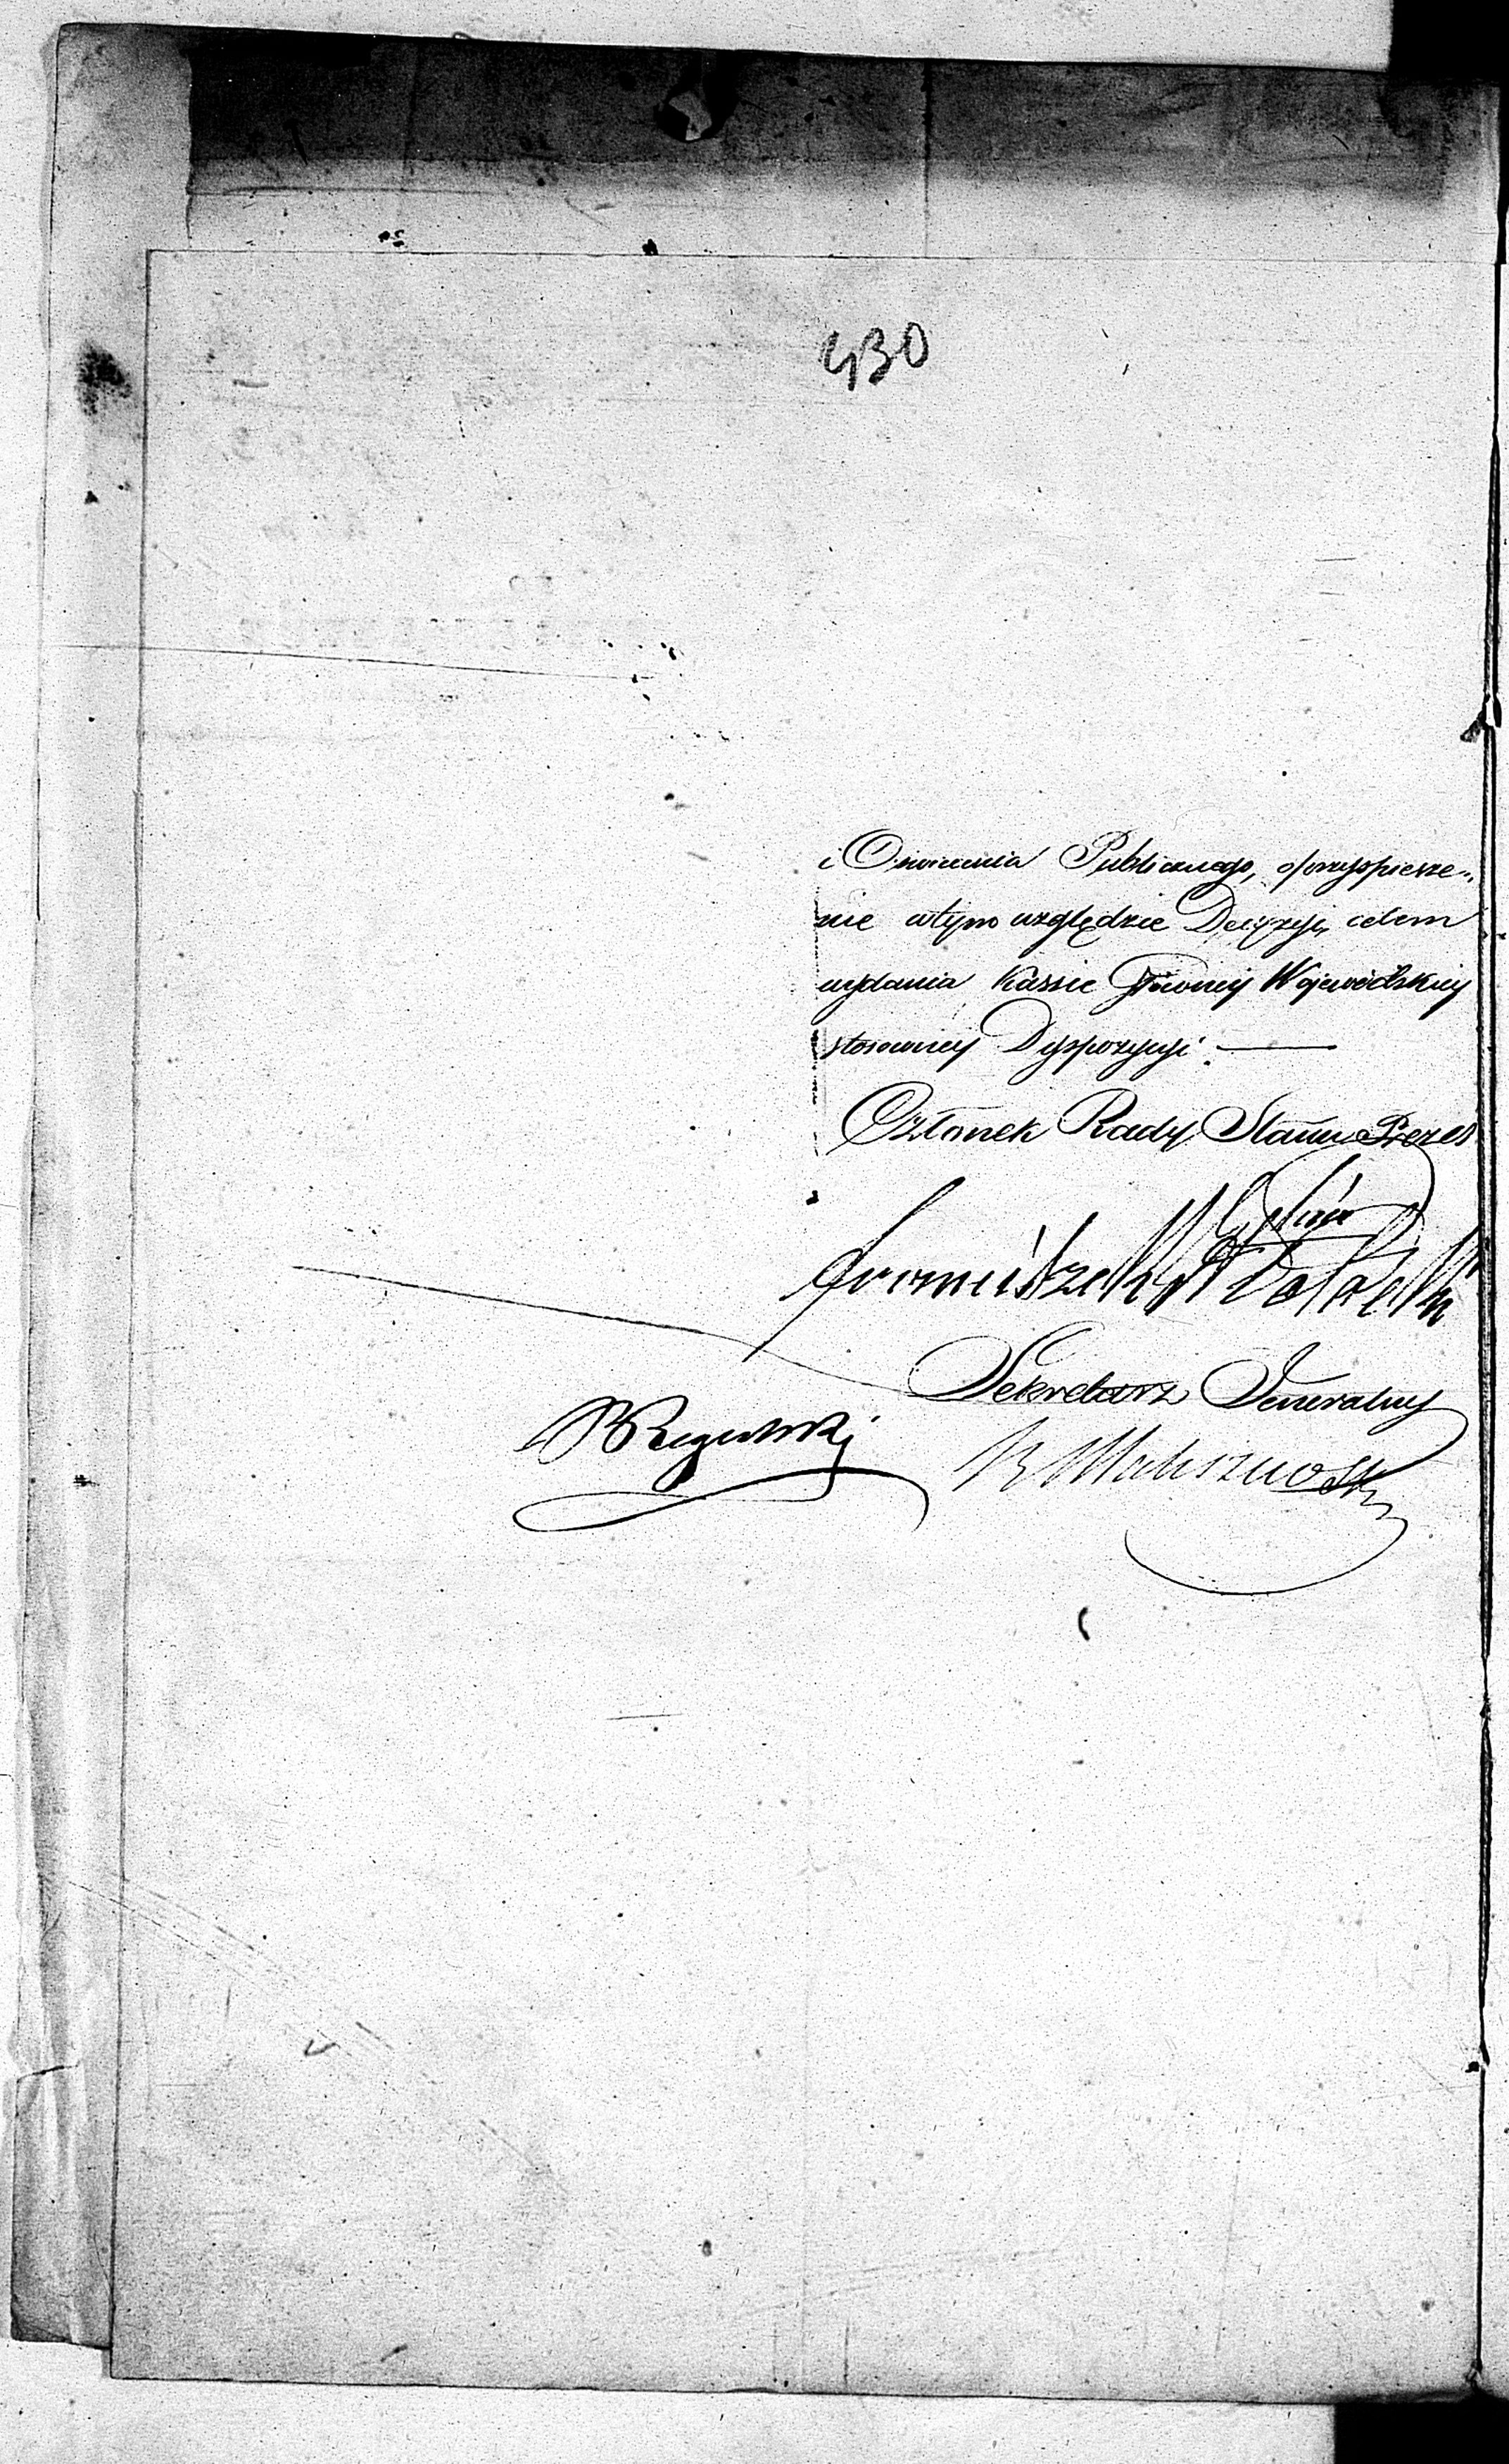 430
i Oświecenia Publicznego, o przyspiesze„
nie w tym względzie Decyzyi, celem
wydania Kassie Głównéy Wojewódzkiéy
stosownéy Dyspozycyi. —
Członek Rady Stanu Prezes
Sekretarz Generalny